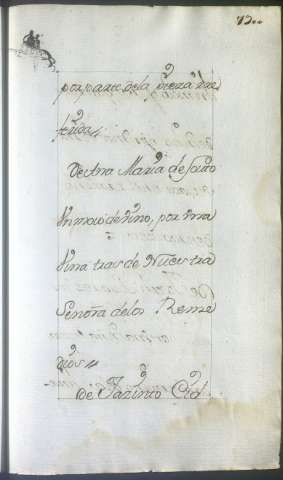 por parte de la pieza re
ferida
De Ana Maria de Soto
Vn moio de vino, por vna
Viña tras de Nuestra
Señora de los Reme
dios
De Jazinto